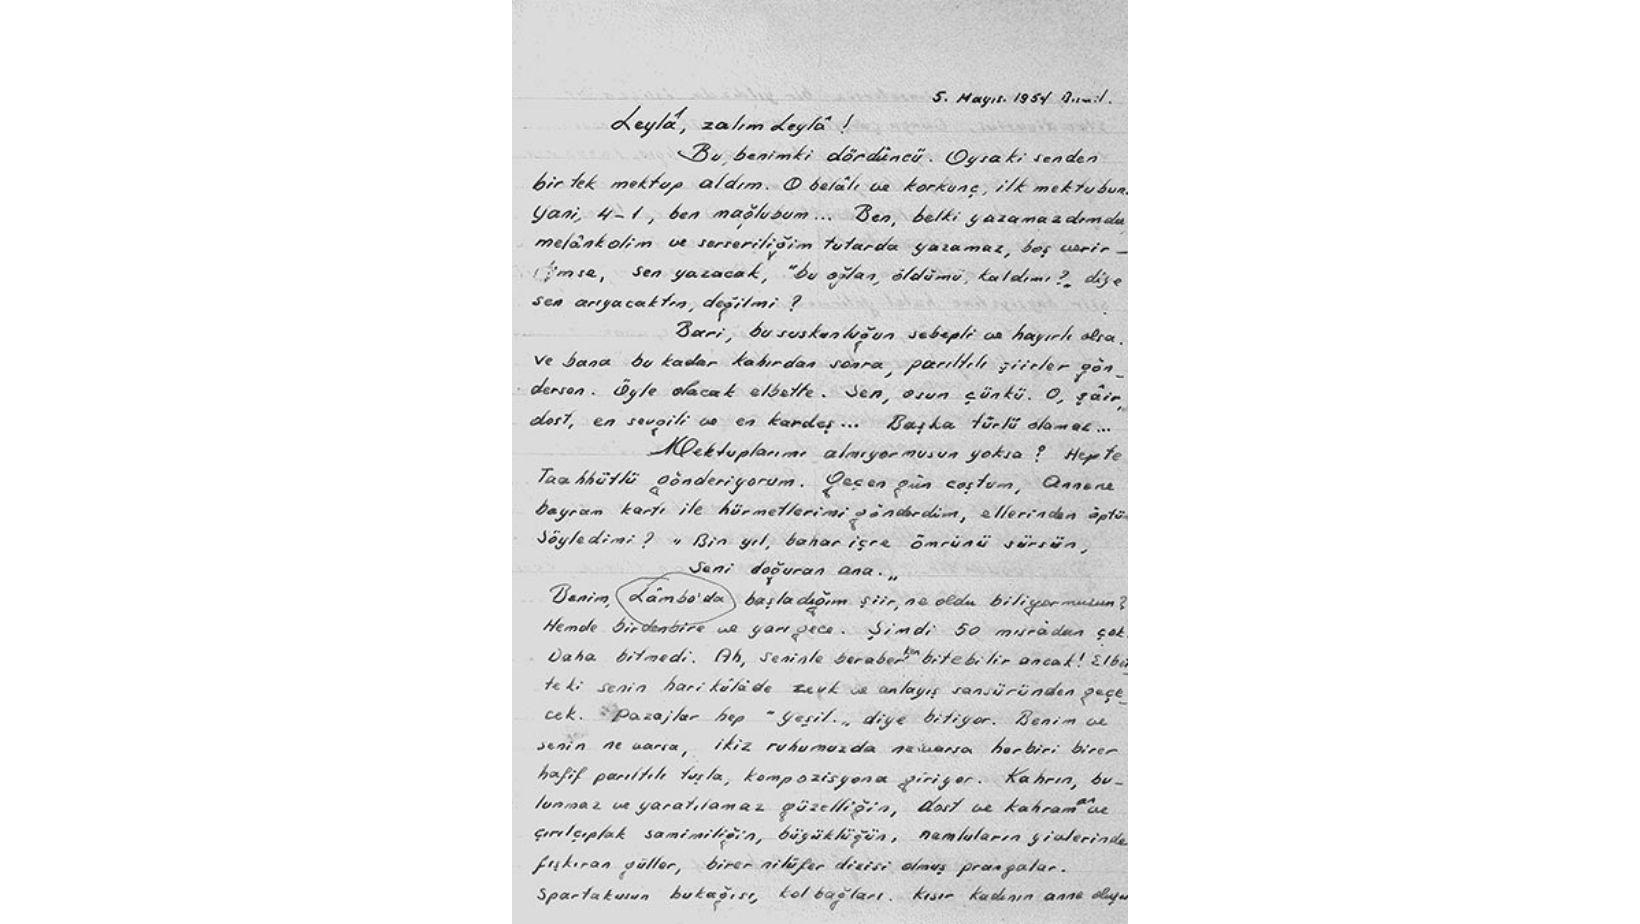 5. Mayıs. 1954 Bismil.
Leylâ, zalım Leylâ !
Bu, benimki dördüncü. Oysaki senden
bir tek mektup aldım. O belâlı ve korkunç, ilk mektubun.
Yani, 4-1, ben mağlubum... Ben, belki yazamazdımda,
melânkolim ve serseriliğim tutarda yazamaz, boş verir-
imse, sen yazacak, "bu oğlan, öldümü, kaldımı?" diye
sen arıyacaktın, değilmi ?
Bari, bu suskunluğun sebepli ve hayırlı olsa.
Ve bana bu kadar kahırdan sonra, parıltılı şiirler gön-
dersen. Öyle olacak elbette. Sen, osun çünkü. O, şâir,
dost, en sevgili ve en kardeş... Başka türlü olamaz...
Mektuplarımı almıyormusun yoksa ? Hepte
Taahhütlü gönderiyorum. Geçen gün coştum, Annene
bayram kartı ile hürmetlerimi gönderdim, ellerinden öptüm
Söyledimi ? " Bin yıl, bahar içre ömrünü sürsün,
Seni doğuran ana. "
Benim, Lâmbo'da başladığım şiir, ne oldu biliyormusun?
Hemde birdenbire ve yarı gece. Şimdi 50 mısrâdan çok.
Daha bitmedi. Ah, seninle beraberken bitebilir ancak! Elbet
teki senin harikûlâde zevk ve anlayış sansüründen geçe-
cek. Pazajlar hep "Yeşil." diye bitiyor. Benim ve
senin ne varsa, ikiz ruhumuzda ne varsa herbiri birer
hafif parıltılı tuşla, kompozisyona giriyor. Kahrın, bu-
lunmaz ve yaratılamaz güzelliğin, dost ve kahraman ve
çırılçıplak samimiliğin, büyüklüğün, namluların yivlerinde
fışkıran güller, birer nilüfer dizisi olmuş prangalar.
Spartaküsün bukağısı, kolbağları. Kısır kadının anne oluşu